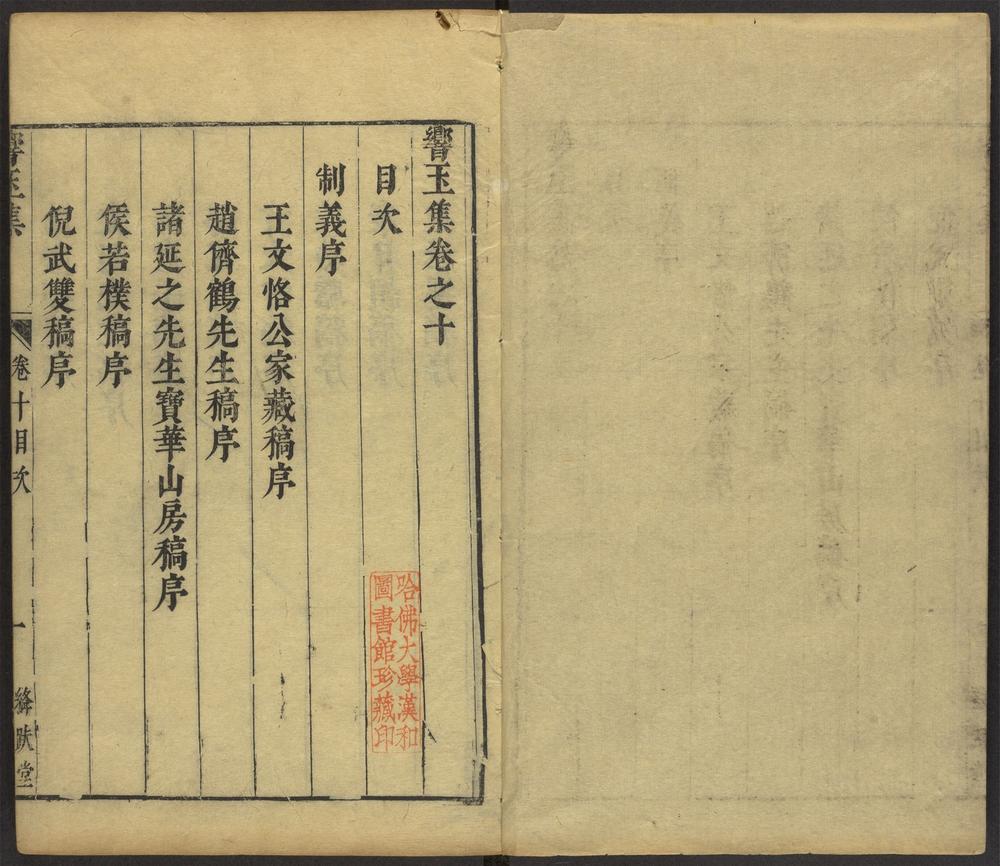 響玉集卷之十
目次
制義序
王文恪公家藏稿序
趙儕鶴先生稿序
諸延之先生寶華山房稿序
侯若樸稿序
倪武雙稿序
響玉集
卷十目次
一
絳趺堂
哈佛大學漢和
圖書館珍藏印